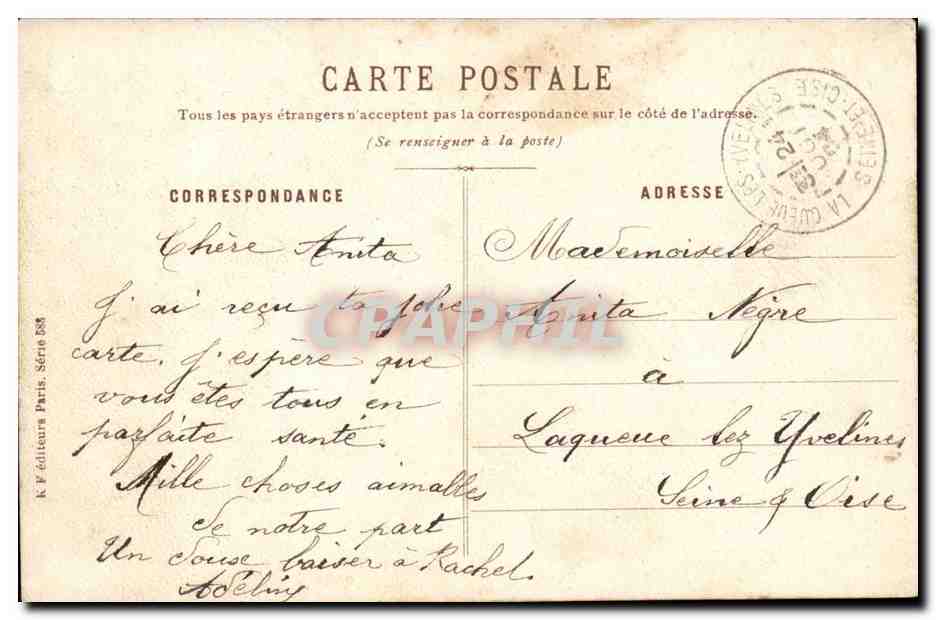 CARTE POSTALE
Tous les pays étrangers n'acceptent pas la correspondance sur le côté de l'adresse.
(Se renseigner à la poste)
CORRESPONDANCE
Chère Anita
J'ai reçu ta jolie
carte. J'espère que
vous êtes tous en
parfaite santé.
Mille choses aimables
de notre part
Un doux baiser à Rachel.
ADRESSE
Mademoiselle
Anita Nègre
à
Laqueue lez Yvelines
Seine & Oise
LA QUEUE LES-YVELINES
SEINE-ET-OISE
24
K F éditeurs Paris. Série 585
CPAPHIL